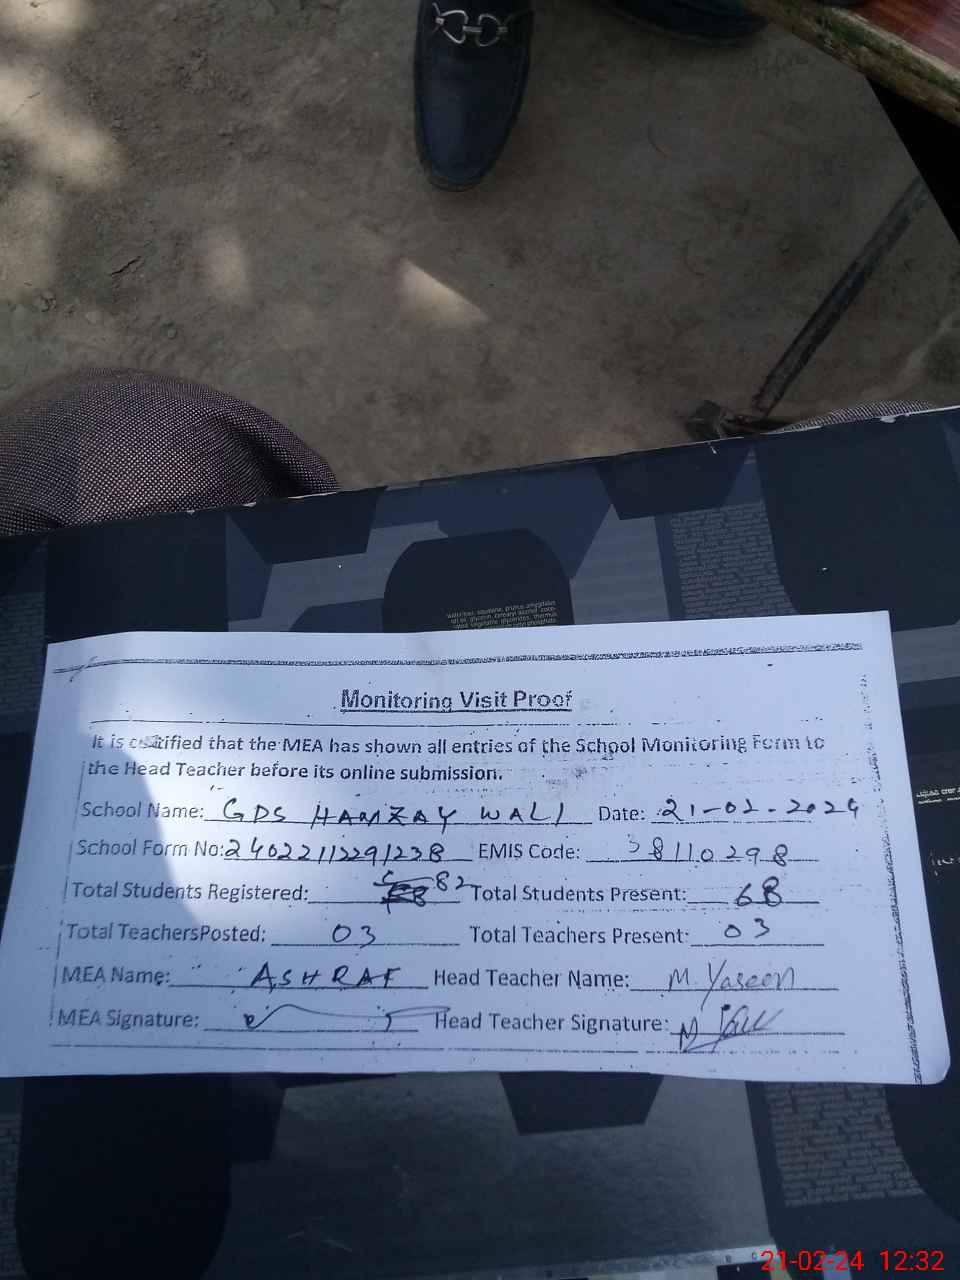 Monitoring Visit Proof
It is certified that the MEA has shown all entries of the School Monitoring Form to
the Head Teacher before its online submission.
School Name: GDS HAMZAY WALI Date: 21-02-2024
School Form No: 24022112291238 EMIS Code: 38110298
Total Students Registered: 82 Total Students Present: 68
Total TeachersPosted: 03 Total Teachers Present: 03
MEA Name: ASHRAF Head Teacher Name: M. Yaseen
MEA Signature: Head Teacher Signature:
21-02-24 12:32